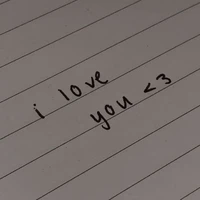 i love
you <3